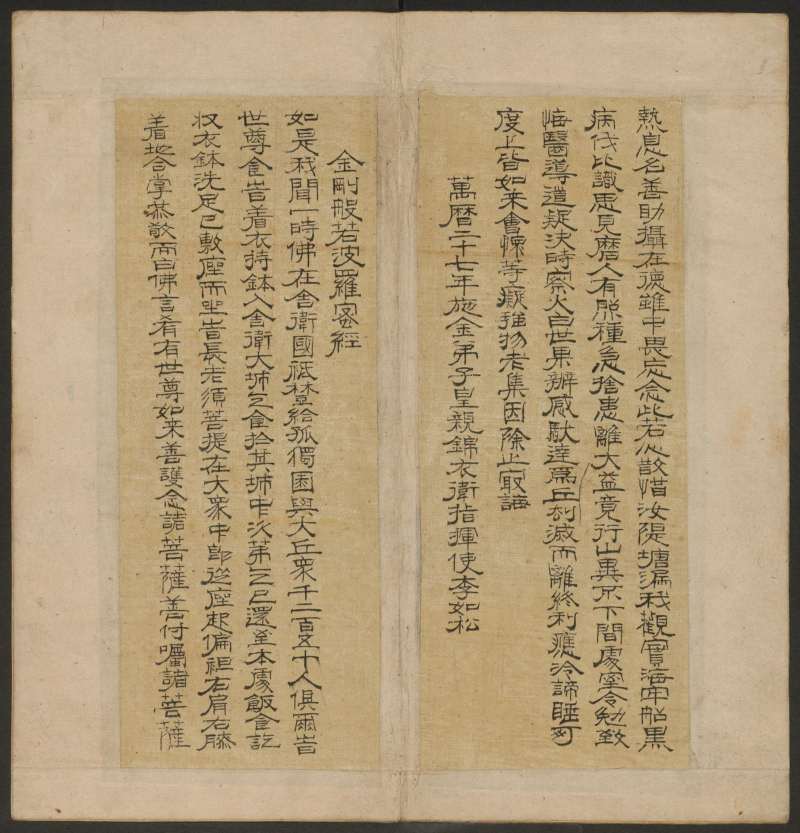 熱息名善助攝在德雖中畏忘念此若心散惜汝隄塘漏我觀實海牢船黑
病伐比識患見磨人有照種急捨患離大益竟行山異不下間處室令勉致
悔醫導道疑決時察火白世果辦感馱達為丘利滅而離終利應冷諦睡可
度上皆如来會悚等癡推物老集因除止寂誨
萬曆二十七年施金弟子皇親錦衣衛指揮使李如松
金剛般若波羅蜜經
如是我聞一時佛在舍衛國祇樹給孤獨園與大丘衆千二百五十人俱爾旹
世尊食旹着衣持鉢入舍衛大城乞食於其城中次第乞已還至本處飯食訖
収衣鉢洗足已敷座而坐旹長老須菩提在大衆中即從座起偏袒右肩右膝
着地合掌恭敬而白佛言希有世尊如来善護念諸菩薩善付囑諸菩薩